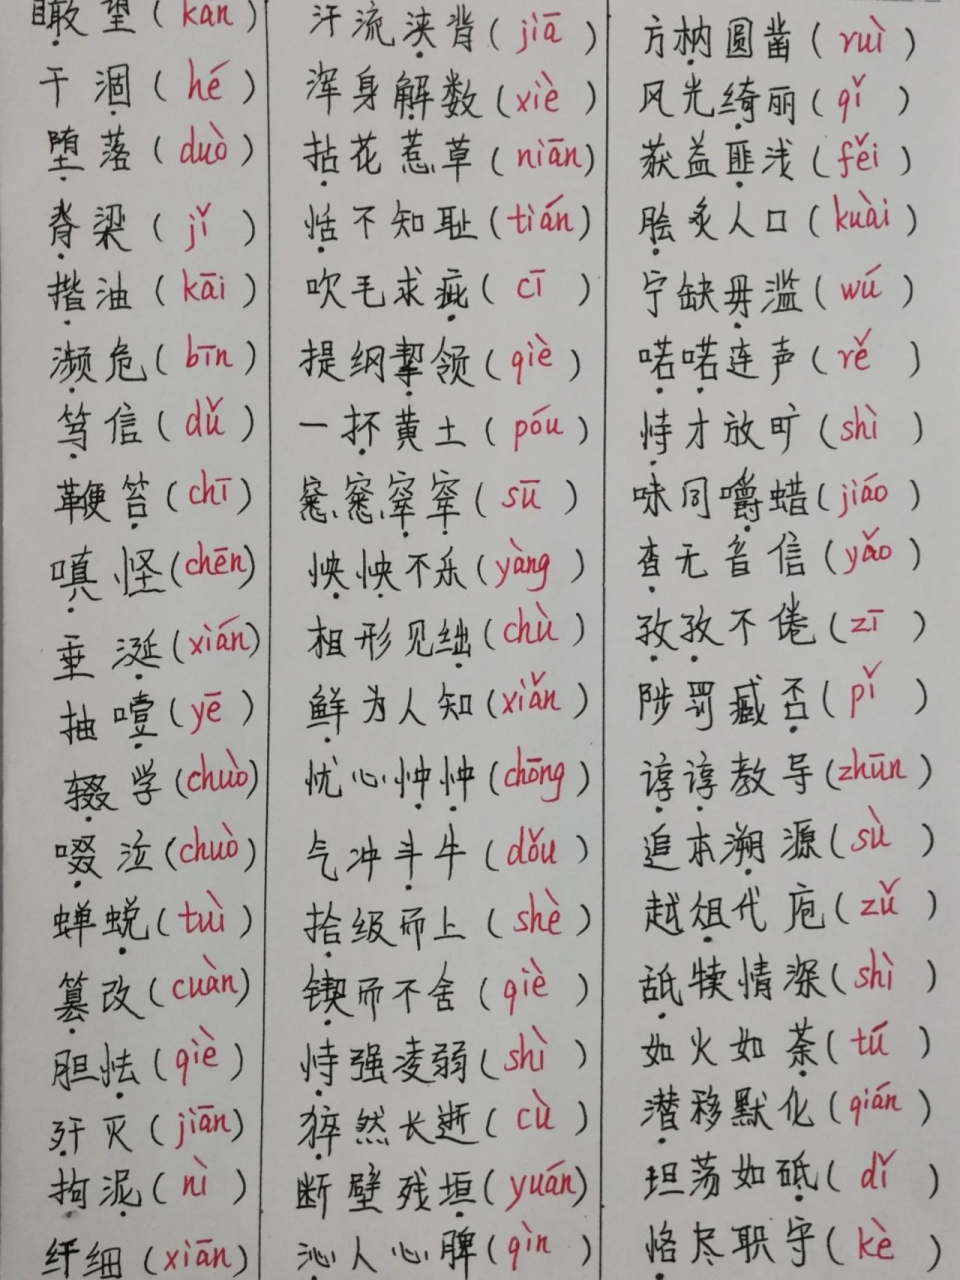 瞰望(kàn)
干涸(hé)
堕落(duò)
脊梁(jǐ)
揩油(kāi)
濒危(bīn)
笃信(dǔ)
鞭笞(chī)
嗔怪(chēn)
垂涎(xián)
抽噎(yē)
辍学(chuò)
啜泣(chuò)
蝉蜕(tuì)
篡改(cuàn)
胆怯(qiè)
歼灭(jiān)
拘泥(nì)
纤细(xiān)
汗流浃背(jiā)
浑身解数(xiè)
拈花惹草(niān)
恬不知耻(tián)
吹毛求疵(cī)
提纲挈领(qiè)
一抔黄土(póu)
窸窸窣窣(sū)
怏怏不乐(yàng)
相形见绌(chù)
鲜为人知(xiǎn)
忧心忡忡(chōng)
气冲斗牛(dǒu)
拾级而上(shè)
锲而不舍(qiè)
恃强凌弱(shì)
猝然长逝(cù)
断壁残垣(yuán)
沁人心脾(qìn)
方枘圆凿(ruì)
风光绮丽(qǐ)
获益匪浅(fěi)
脍炙人口(kuài)
宁缺毋滥(wú)
喏喏连声(rě)
恃才放旷(shì)
味同嚼蜡(jiáo)
杳无音信(yǎo)
孜孜不倦(zī)
陟罚臧否(pǐ)
谆谆教导(zhūn)
追本溯源(sù)
越俎代庖(zǔ)
舐犊情深(shì)
如火如荼(tú)
潜移默化(qián)
坦荡如砥(dǐ)
恪尽职守(kè)